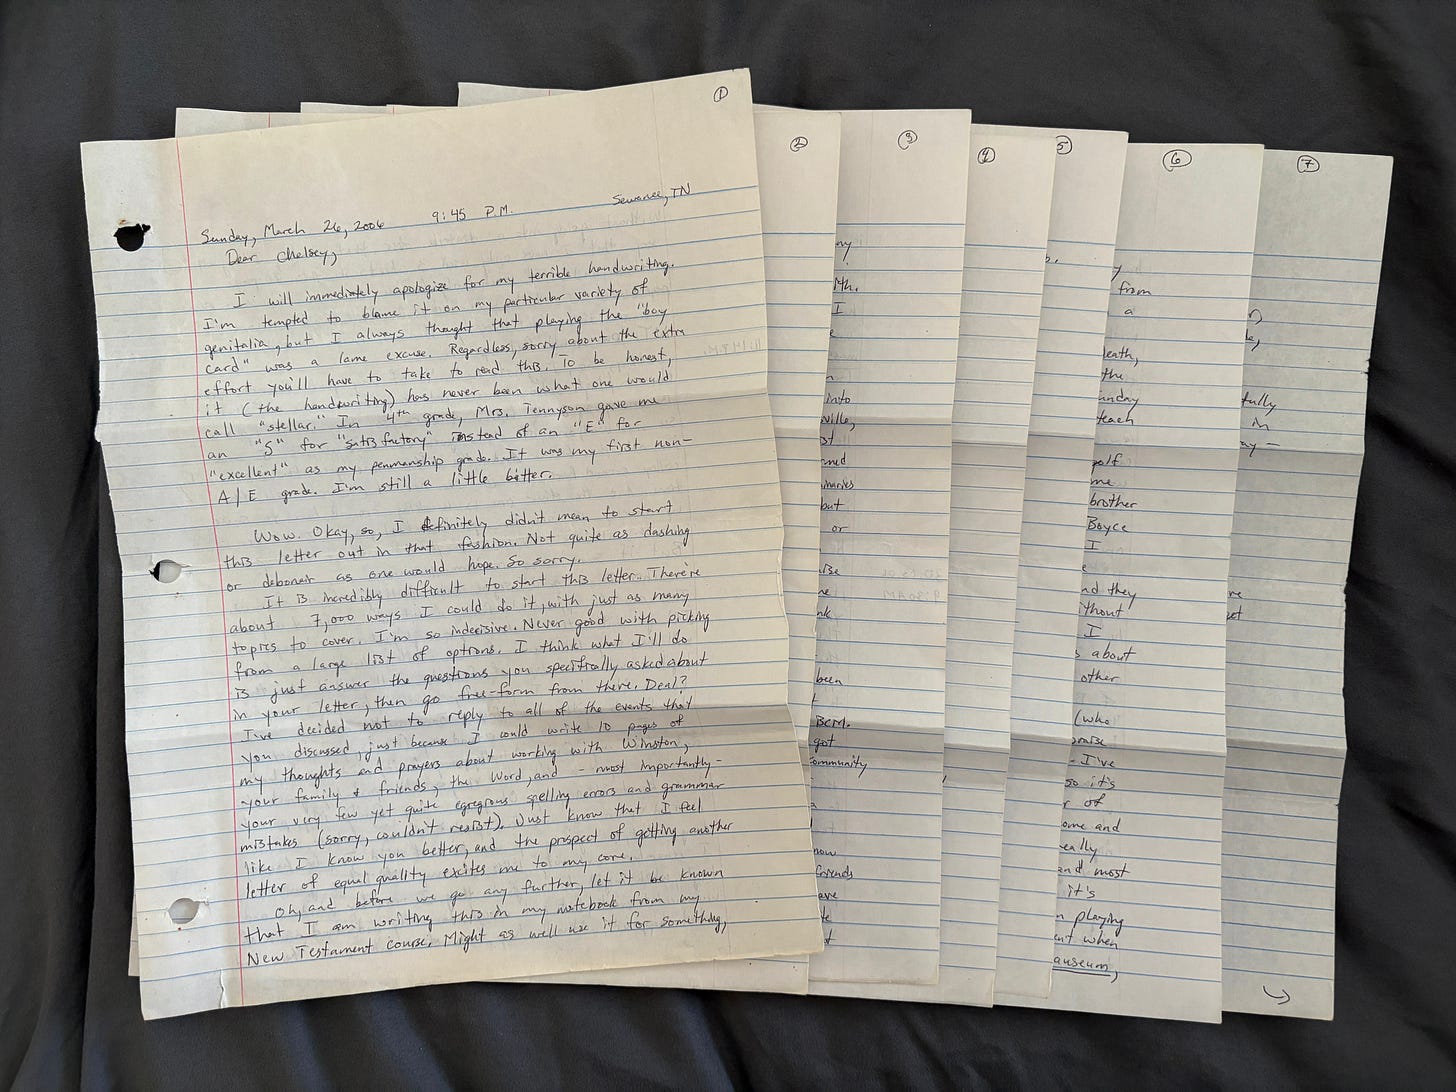 ①
Sunday, March 26, 2006 9:45 P.M. Sewanee, TN
Dear Chelsey,
I will immediately apologize for my terrible handwriting.
I'm tempted to blame it on my particular variety of
genitalia, but I always thought that playing the "boy
card" was a lame excuse. Regardless, sorry about the extra
effort you'll have to take to read this. To be honest,
it (the handwriting) has never been what one would
call "stellar." In 4th grade, Mrs. Tennyson gave me
an "S" for "satisfactory" instead of an "E" for
"excellent" as my penmanship grade. It was my first non-
A/E grade. I'm still a little bitter.
Wow. Okay, so, I definitely didn't mean to start
this letter out in that fashion. Not quite as dashing
or debonair as one would hope. So sorry.
It is incredibly difficult to start this letter. There're
about 7,000 ways I could do it, with just as many
topics to cover. I'm so indecisive. Never good with picking
from a large list of options. I think what I'll do
is just answer the questions you specifically asked about
in your letter, then go free-form from there. Deal?
I've decided not to reply to all of the events that
you discussed, just because I could write 10 pages of
my thoughts and prayers about working with Winston,
your family & friends, the Word, and - most importantly -
your very few yet quite egregious spelling errors and grammar
mistakes (sorry, couldn't resist). Just know that I feel
like I know you better, and the prospect of getting another
letter of equal quality excites me to my core.
Oh, and before we go any further, let it be known
that I am writing this in my notebook from my
New Testament course. Might as well use it for something,
②
③
I
into
but
or
been
BCM.
got
community
now
friends
④
⑤
⑥
from
a
the
teach
me
brother
Boyce
I
and they
I
about
other
(who
- I've
so it's
of
and
and most
it's
playing
when
⑦
in